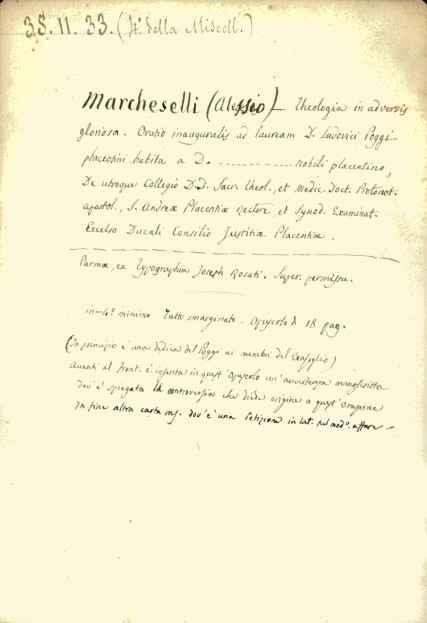 3S. II. 33. (It. della Miscell.)
Marcheselli (Alessio) — Theologia in adversis
gloriosa. Oratio inauguralis ad lauream D. Ludovici Poggi
placentini habita a D. .................. nobili placentino,
De utroque Collegio D.D. Sacr. Theol., et Medic. Doct. Protonot.
Apostol., S. Andreæ Placentiæ Rectore, et Synod. Examinat.
Excelso Ducali Consilio Justitiæ Placentiæ.
Parmæ, ex Typographia Joseph Rosati. Super. permissu.
in-4.º minimo Tutto smarginato - Opuscolo di 18 pag.
(In principio è una dedica del Poggi ai membri del Consiglio)
Avanti al front. è inserita in quest'Opuscolo un'avvertenza manoscritta
dov'è spiegata la controversia che diede origine a quest'Orazione
In fine altra carta ms. dov'è una Petizione in lat. sul med.º affare —